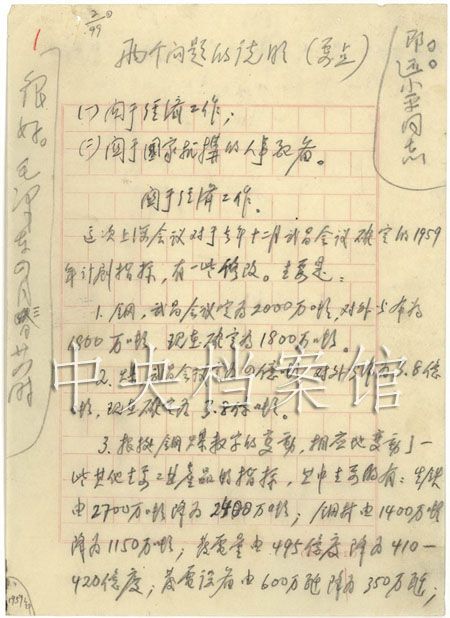 1
2/99
两个问题的说明（要点）
即送小平同志
很好。毛泽东 四月 廿八时
（一）关于经济工作；
（二）关于国家机构的人事配备。
关于经济工作。
这次上海会议对于去年十二月武昌会议确定的1959
年计划指标，有一些修改。主要是：
1.钢，武昌会议定为2000万吨，对外公布为
1800万吨，现在确定为1800万吨。
2.煤，武昌会议定为 亿吨，对外 为3.8亿
吨，现在确定为3.8亿吨。
3.根据钢煤数字的变动，相应地变动了一
些其他主要工业产品的指标，其中主要的有：生铁
由2700万吨降为2400万吨；钢材由1400万吨
降为1150万吨；发电量由495亿度降为410—
420亿度；发电设备由600万瓩降为350万瓩；
中央档案馆
1959